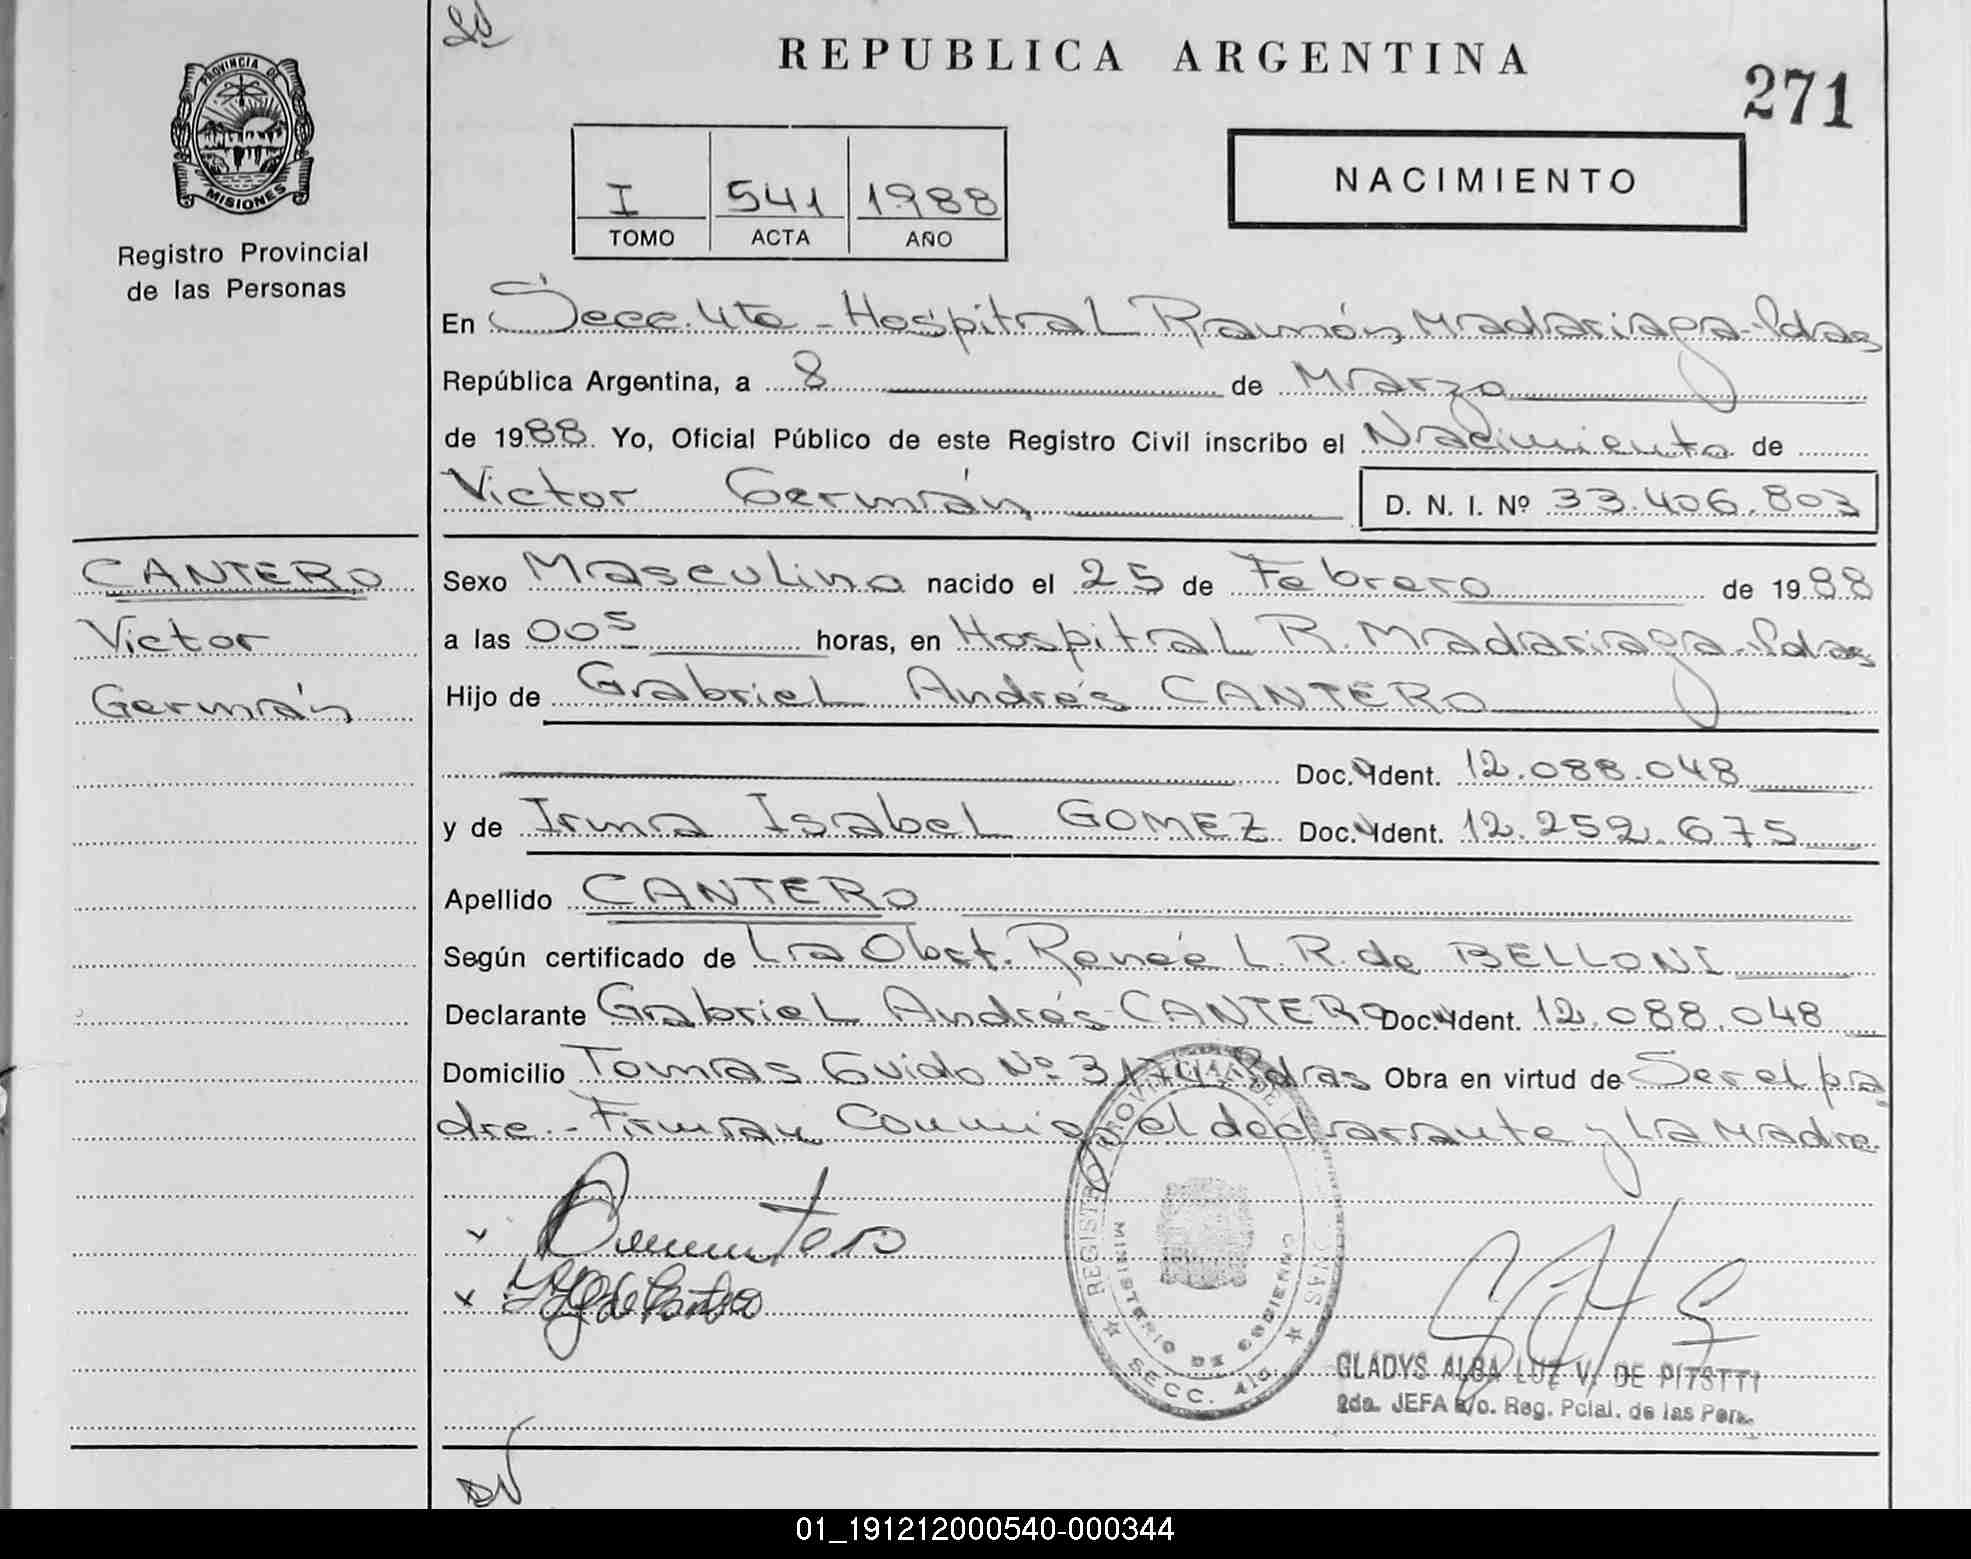 REPUBLICA ARGENTINA
271
PROVINCIA DE
MISIONES
Registro Provincial
de las Personas
I 541 1988
TOMO ACTA AÑO
NACIMIENTO
En Secc. 4ta - Hospital Ramón Madariaga - Pdas
República Argentina, a 8 de Marzo
de 1988 Yo, Oficial Público de este Registro Civil inscribo el Nacimiento de
Victor Germán D. N. I. Nº 33.406.803
CANTERO
Victor
Germán
Sexo Masculino nacido el 25 de Febrero de 1988
a las 00⁵ horas, en Hospital R. Madariaga - Pdas
Hijo de Gabriel Andrés CANTERO
Doc. Ident. 12.088.048
y de Irma Isabel GOMEZ Doc. Ident. 12.252.675
Apellido CANTERO
Según certificado de La Obst. Renée L. R. de BELLONI
Declarante Gabriel Andrés CANTERO Doc. Ident. 12.088.048
Domicilio Tomas Guido Nº Pdras Obra en virtud de Ser el pa
dre.- Firman Conmigo el declarante y La Madre
REGISTRO PROVINCIAL DE
MINISTERIO DE GOBIERNO
SECC. 4ta.
GLADYS ALBA LUZ V. DE PITOTTI
2da. JEFA a/c. Reg. Pcial. de las Pers.
01_191212000540-000344